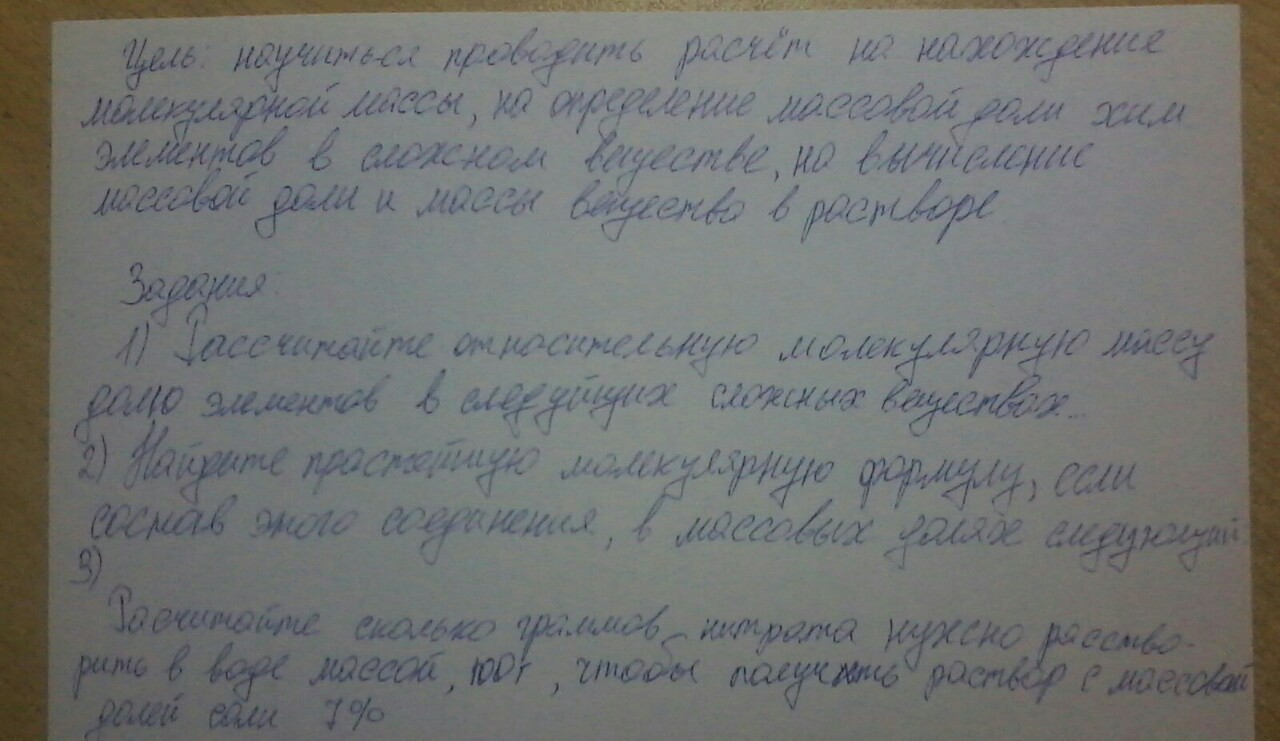 Цель: научиться проводить расчёт на нахождение
молекулярной массы, на определение массовой доли хим
элементов в сложном веществе, на вычисление
массовой доли и массы вещества в растворе.
Задания:
1) Рассчитайте относительную молекулярную массу
долю элементов в следуйщих сложных веществах...
2) Найдите простейшую молекулярную формулу, если
состав этого соединения, в массовых долях следующий
3)
Расчитайте сколько граммов нитрата нужно расство-
рить в воде массой, 100г, чтобы получить раствор с массовой
долей соли 7%